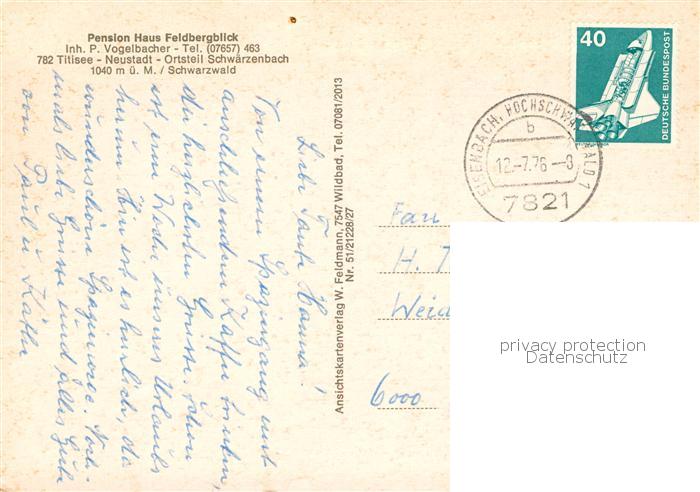 Pension Haus Feldbergblick
Inh. P. Vogelbacher - Tel. (07657) 463
782 Titisee - Neustadt - Ortsteil Schwärzenbach
1040 m ü. M. / Schwarzwald
Liebe Tante Hanna!
Von einem Spaziergang mit
anschließendem Kaffee trinken,
die herzlichsten Grüsse. Schon
ist eine Woche unseres Urlaubs
herum. Hier ist es herrlich, da
wunderschöne Spazierwege. Noch-
mals liebe Grüsse und alles Gute
von Paul u. Käthe
Ansichtskartenverlag W. Feldmann, 7547 Wildbad, Tel. 07081/2013
Nr. 51/21228/27
40
DEUTSCHE BUNDESPOST
EISENBACH, HOCHSCHWARZWALD 1
b
12.-7.76-8
7821
Frau
H.
Weid
6000
privacy protection
Datenschutz